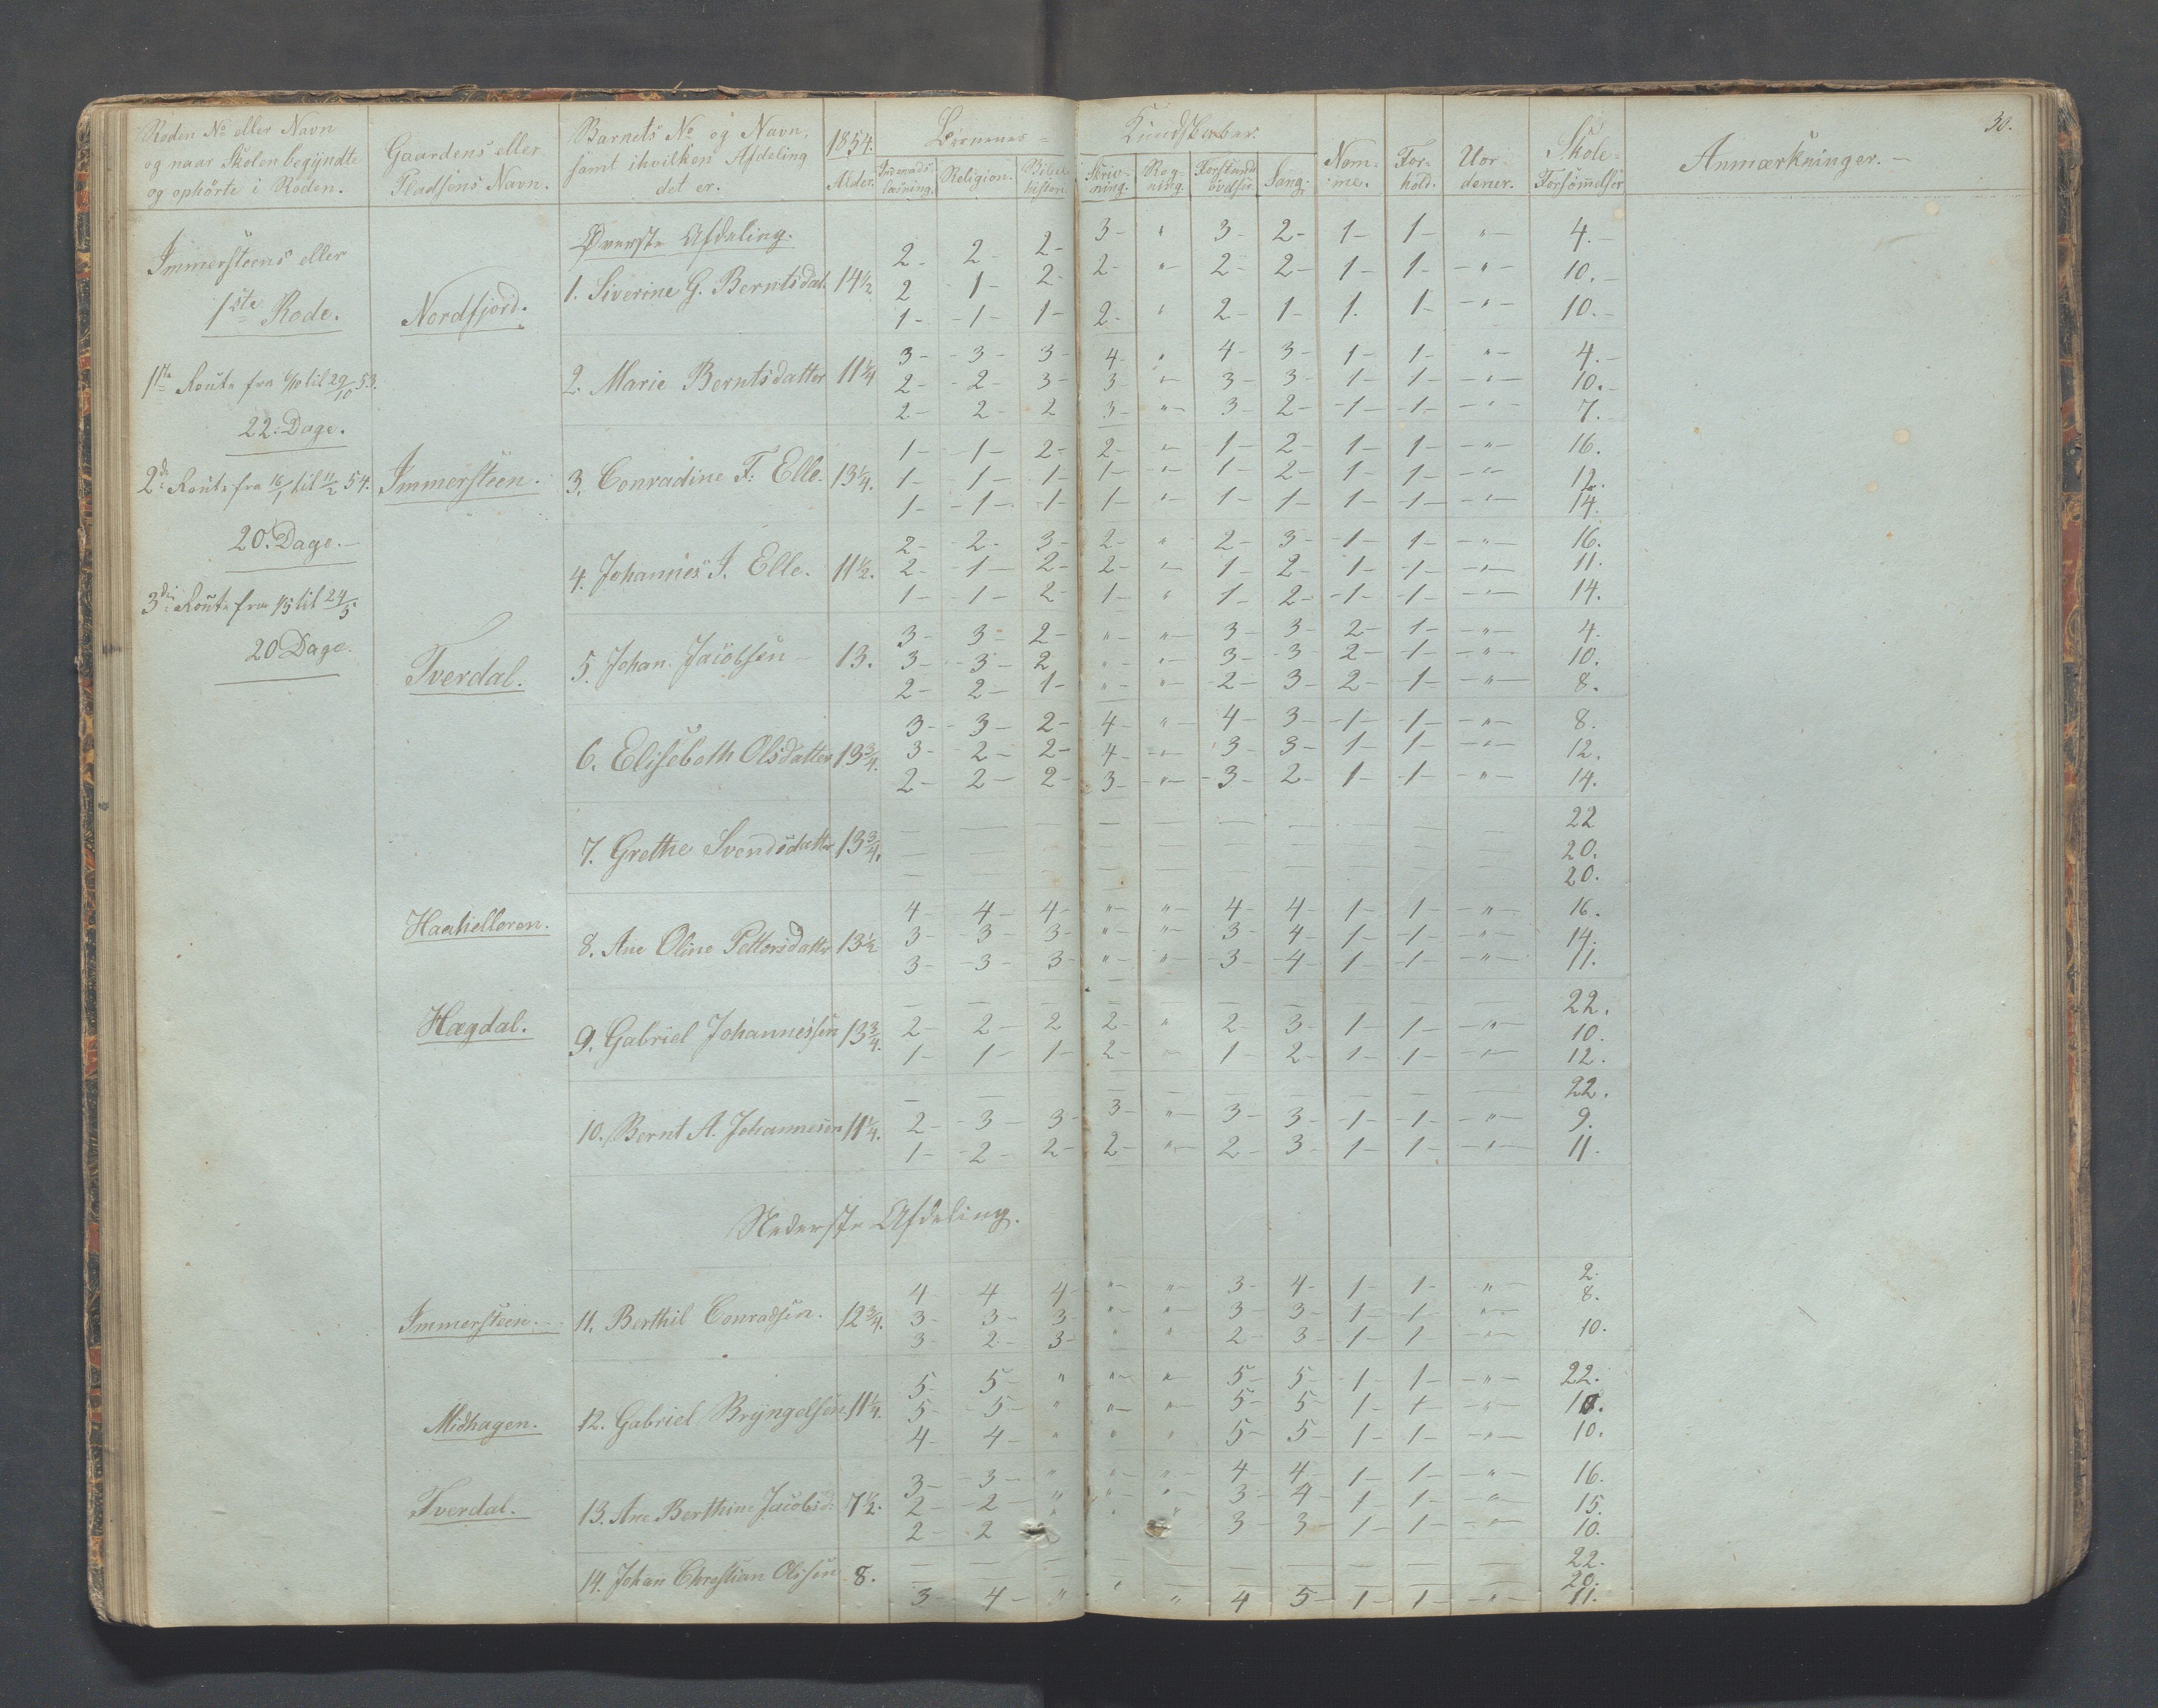 30.
Roden No eller Navn
og naar Skolen begyndte
og ophörte i Roden.
Gaardens eller
Pladsens Navn.
Barnets No og Navn,
samt ihvilken Afdeling
det er.
1854.
Alder.
Börnenes
Kundskaber.
Religion.
Bibel
historie
Skriv-
ning.
Reg-
ning.
Forstands
övelser
Sang.
Nem-
me.
For-
hold.
Uor-
dener.
Skole-
Forsömmelser
Anmærkninger. —
Immersteens eller
1ste Rode.
1ste Route fra 6/10 til 29/10 53.
22. Dage.
2de Route fra 16/1 til 11/2 54.
20. Dage. —
3die Route fra 1/5 til 24/5
20 Dage.
Øverste Afdeling.
Nordfjord.
1. Siverine G. Berntsdat. 14 1/2
2 - 2 - 2 - 3 - " 3 - 2 - 1 - 1 - " - 4. -
2 - 1 - 2 - 2 - " - 2 - 2 - 1 - 1 - - " - 10. -
1 - 1 - 1 - 2 - " 2 - 1 - 1. 1 - - " - 10. -
2. Marie Berntsdatter 11 1/4
3 - 3 - 3 - 4 - " 4 - 3 - 1 - 1 - " - 4. -
2 - 2 - 3 - 3 - " - 3 - 3 - 1 - 1 - - " - 10. -
2 - 2 - 2 3 - " - 3 - 2 - 1 - 1 - - " - 7.
Immersteen.
3. Conradine F. Elle. 13 1/4.
1 - 1 - 2 - 2 - " - 1 - 2 - 1 - 1 - - " - 16.
1 - 1 - 1 - 1 - " - 1 - 2 - 1 - 1 - - " - 12.
1 - 1 - 1 - 1 - " - 1 - 1 - 1 - 1 - - " - 14.
4. Johannes I. Elle. 11 1/2.
2 - 2 - 3 - 2 - " 2 - 3 - 1 - 1 - - " - 16.
2 - 1 - 2 - 2 - " - 1 - 2 - 1 - 1 - - " - 11.
1 - 1 - 2 - 1 - " 1 - 2 - 1 - 1 - - " - 14.
Tverdal.
5. Johan Jacobsen — 13.
3 - 3 - 2 - " - " - 3 - 3 - 2 - 1 - - " - 4.
3 - 3 - 2 " - " - 3 - 3 - 2 - 1 - - " - 10.
2 - 2 - 1 - " - " - 2 - 3 - 2 - 1 - - " - 8.
6. Elisebeth Olsdatter 13 3/4.
3 - 3 - 2 - 4 - " - 4 - 3 - 1 - 1 - - " - 8.
3 - 2 - 2 - 4 - " - 3 - 3 - 1 - 1 - - " - 12.
2 - 2 - 2 - 3 - " - 3 - 2 - 1 - 1 - - " - 14.
7. Grethe Svendsdatter 13 3/4.
— — — — — — — — — — 22
— — — — — — — — — — 20.
— — — — — — — — — — 20.
Haahelleren.
8. Ane Oline Pettersdatter 13 1/2
4 - 4 - 4 - " - " - 4 - 4 - 1 - 1 - - " - 16.
3 - 3 - 3 - " - " - 3 - 4 - 1 - 1 - - " - 14.
3 - 3 - 3 - " - " - 3 - 4 - 1 - 1 - - " - 11.
Hægdal.
9. Gabriel Johannessen 13 3/4.
— — — — — — — — — — 22.
2 - 2 - 2 2 - " 2 - 3 - 1 - 1 - - " - 10.
1 - 1 - 1 - 2 - " - 1 - 2 - 1 - 1 - - " - 12.
10. Bernt A. Johannesen 11 1/4.
— — — — — — — — — — 22.
2 - 3 - 3 - 3 - " - 3 - 3 - 1 - 1 - - " - 9.
1 - 2 - 2 - 2 - " - 2 - 3 - 1 - 1 - - " - 11.
Nederste Afdeling.
Immersteen. -
11. Berthil Conradsen. 12 3/4.
4 - 4 4 - " - " - 3 - 4 - 1 - 1 - " - 2.
3 - 3 - 3 - " - " - 3 - 3 - 1 - 1 - " - 8.
3 - 2 - 3 - " " 2 - 3 - 1 - 1 - - " - 10.
Midhagen.
12. Gabriel Bryngelsen 11 1/4.
5 - 5 - " " - " - 5 - 5 - 1 - 1 - - " - 22.
5 - 5 - " " - " - 5 - 5 - 1 - 1 - - " -
4 - 4 - " " " 5 - 5 - 1 - 1 - - " - 10.
Tverdal.
13. Ane Berthine Jacobsd: 7 1/2.
3 - 3 - " " - " - 4 - 4 - 1 - 1 - - " - 16.
2 - 2 - " " - " - 3 - 4 - 1 - 1 - - " - 15.
2 - 2 " " " 3 - 3 - 1 - 1 - - " - 10.
14. Johan Christian Olssen 8.
— — — — — — — — — — 22.
— — — — — — — — — — 20.
3 - 4 - " " " 4 5 - 1 - 1 - - " - 11.